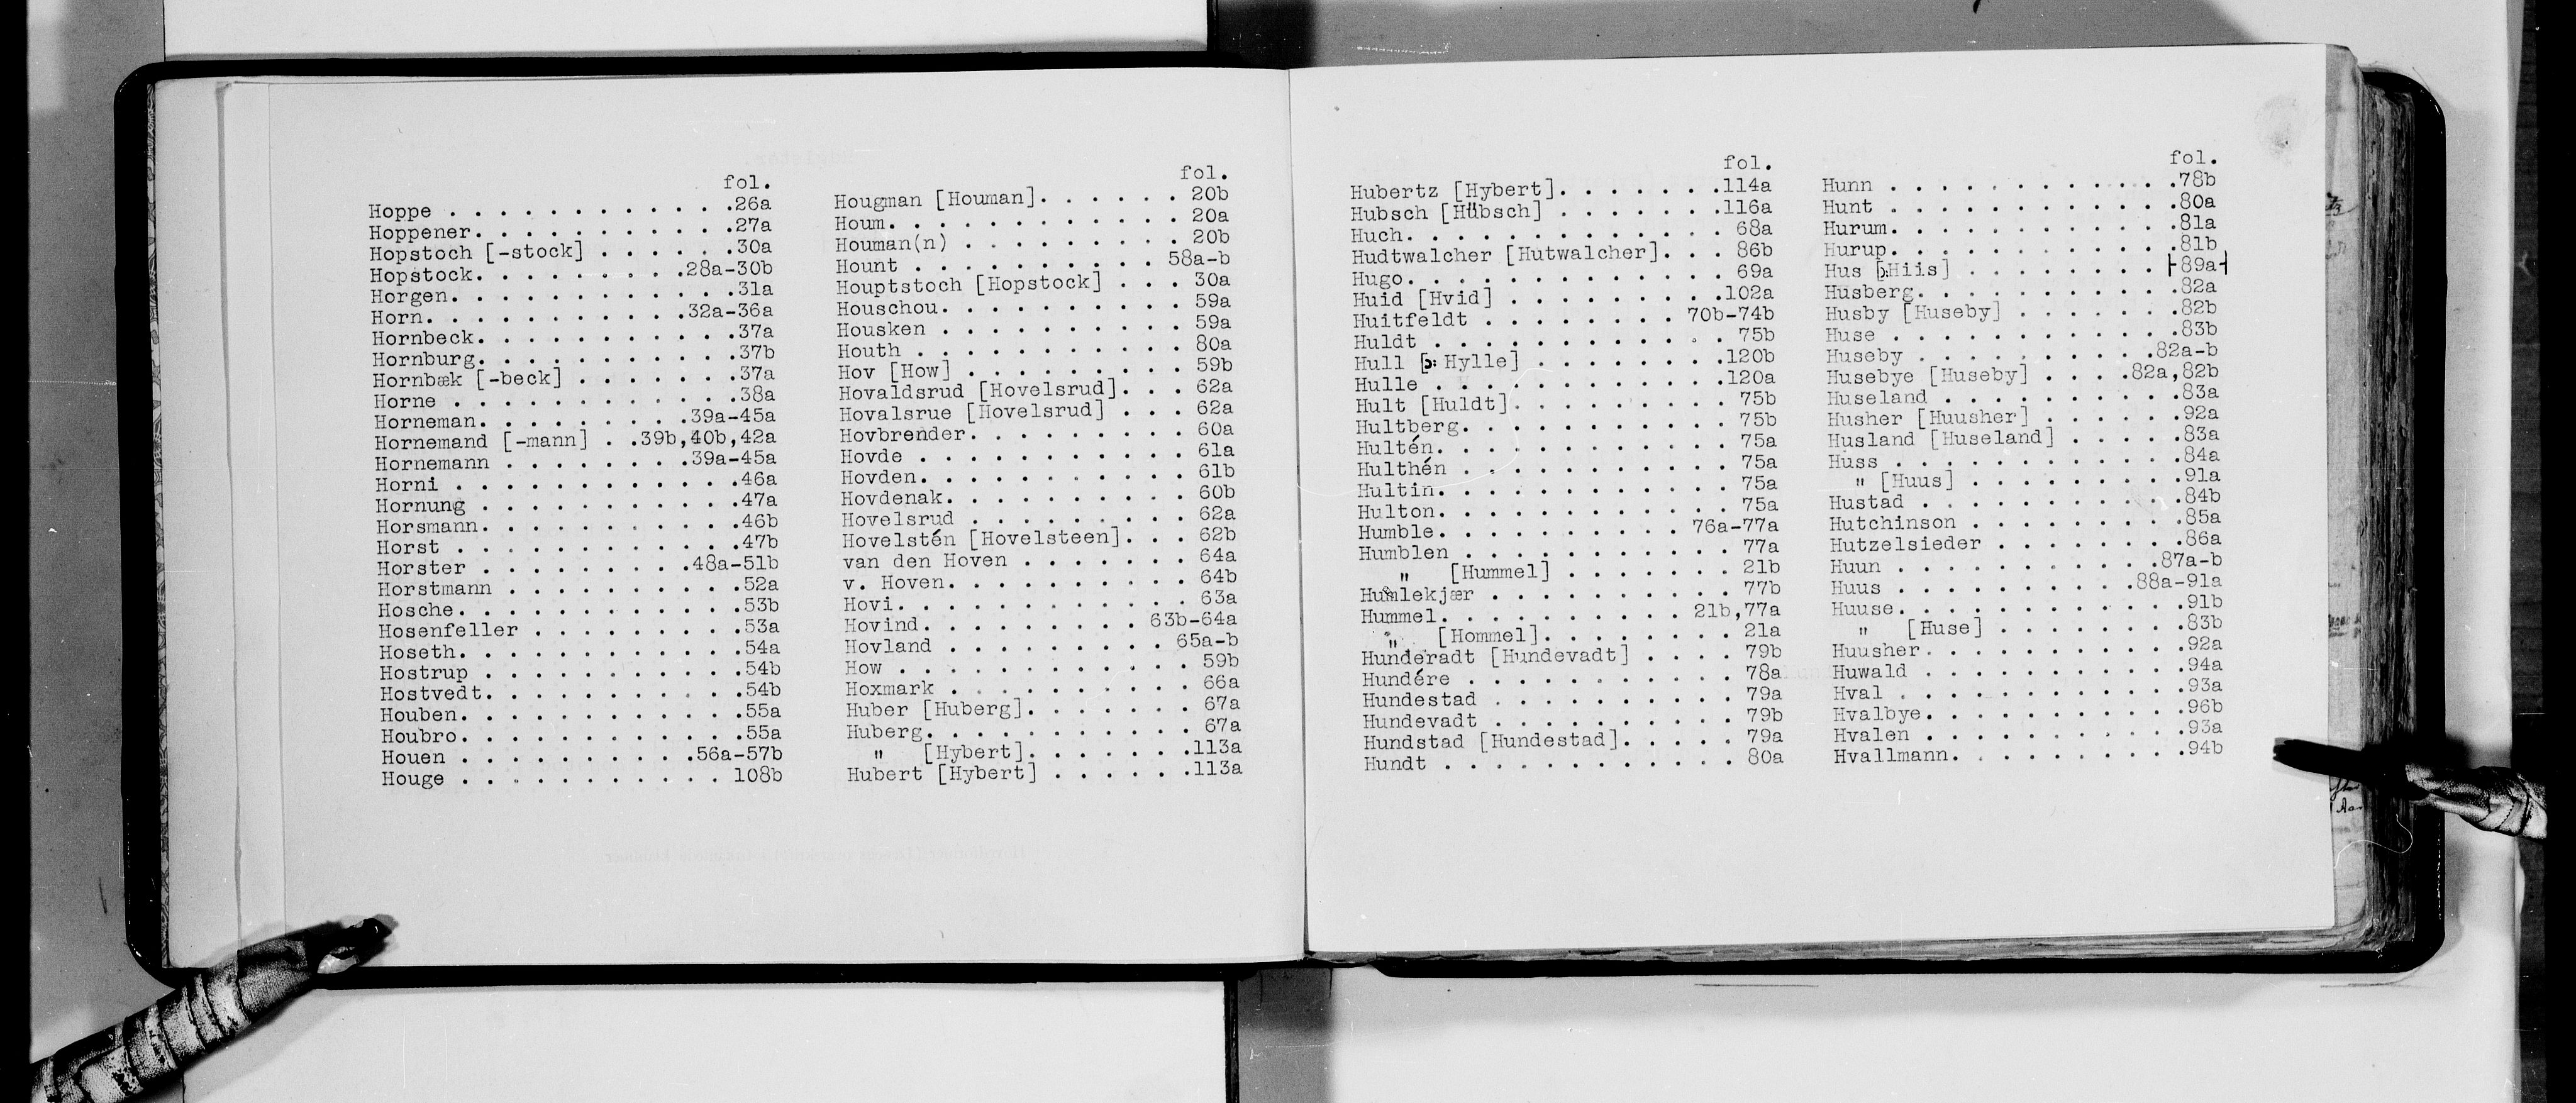 fol.
Hoppe . . . . . . . . . . . .26a
Hoppener. . . . . . . . . . .27a
Hopstoch [-stock] . . . . . .30a
Hopstock. . . . . . . . .28a-30b
Horgen. . . . . . . . . . . .31a
Horn. . . . . . . . . . .32a-36a
Hornbeck. . . . . . . . . . .37a
Hornburg. . . . . . . . . . .37b
Hornbæk [-beck] . . . . . . .37a
Horne . . . . . . . . . . . .38a
Horneman. . . . . . . . .39a-45a
Hornemand [-mann] . .39b,40b,42a
Hornemann . . . . . . . .39a-45a
Horni . . . . . . . . . . . .46a
Hornung . . . . . . . . . . .47a
Horsmann. . . . . . . . . . .46b
Horst . . . . . . . . . . . .47b
Horster . . . . . . . . .48a-51b
Horstmann . . . . . . . . . .52a
Hosche. . . . . . . . . . . .53b
Hosenfeller . . . . . . . . .53a
Hoseth. . . . . . . . . . . .54a
Hostrup . . . . . . . . . . .54b
Hostvedt. . . . . . . . . . .54b
Houben. . . . . . . . . . . .55a
Houbro. . . . . . . . . . . .55a
Houen . . . . . . . . . .56a-57b
Houge . . . . . . . . . . . 108b
fol.
Hougman [Houman]. . . . . . 20b
Houm. . . . . . . . . . . . 20a
Houman(n) . . . . . . . . . 20b
Hount . . . . . . . . . . 58a-b
Houptstoch [Hopstock] . . . 30a
Houschou. . . . . . . . . . 59a
Housken . . . . . . . . . . 59a
Houth . . . . . . . . . . . 80a
Hov [How] . . . . . . . . . 59b
Hovaldsrud [Hovelsrud]. . . 62a
Hovalsrue [Hovelsrud] . . . 62a
Hovbrender. . . . . . . . . 60a
Hovde . . . . . . . . . . . 61a
Hovden. . . . . . . . . . . 61b
Hovdenak. . . . . . . . . . 60b
Hovelsrud . . . . . . . . . 62a
Hovelstén [Hovelsteen]. . . 62b
van den Hoven . . . . . . . 64a
v. Hoven. . . . . . . . . . 64b
Hovi. . . . . . . . . . . . 63a
Hovind. . . . . . . . . 63b-64a
Hovland . . . . . . . . . 65a-b
How . . . . . . . . . . . . 59b
Hoxmark . . . . . . . . . . 66a
Huber [Huberg]. . . . . . . 67a
Huberg. . . . . . . . . . . 67a
" [Hybert]. . . . . . .113a
Hubert [Hybert] . . . . . .113a
fol.
Hubertz [Hybert]. . . . . . .114a
Hubsch [Hübsch] . . . . . . .116a
Huch. . . . . . . . . . . . . 68a
Hudtwalcher [Hutwalcher]. . . 86b
Hugo. . . . . . . . . . . . . 69a
Huid [Hvid] . . . . . . . . .102a
Huitfeldt . . . . . . . . 70b-74b
Huldt . . . . . . . . . . . . 75b
Hull [ɔ: Hylle] . . . . . . . .120b
Hulle . . . . . . . . . . . .120a
Hult [Huldt]. . . . . . . . . 75b
Hultberg. . . . . . . . . . . 75b
Hultén. . . . . . . . . . . . 75a
Hulthén . . . . . . . . . . . 75a
Hultin. . . . . . . . . . . . 75a
Hulton. . . . . . . . . . . . 75a
Humble. . . . . . . . . . 76a-77a
Humblen . . . . . . . . . . . 77a
" [Hummel] . . . . . . . 21b
Humlekjær . . . . . . . . . . 77b
Hummel. . . . . . . . . . 21b,77a
" [Hommel]. . . . . . . . 21a
Hunderadt [Hundevadt] . . . . 79b
Hundére . . . . . . . . . . . 78a
Hundestad . . . . . . . . . . 79a
Hundevadt . . . . . . . . . . 79b
Hundstad [Hundestad]. . . . . 79a
Hundt . . . . . . . . . . . . 80a
fol.
Hunn . . . . . . . . . . . .78b
Hunt . . . . . . . . . . . .80a
Hurum. . . . . . . . . . . .81a
Hurup. . . . . . . . . . . .81b
Hus [ɔ: Hiis] . . . . . . . . [-89a-]
Husberg. . . . . . . . . . .82a
Husby [Huseby] . . . . . . .82b
Huse . . . . . . . . . . . .83b
Huseby . . . . . . . . . .82a-b
Husebye [Huseby] . . . .82a,82b
Huseland . . . . . . . . . .83a
Husher [Huusher] . . . . . .92a
Husland [Huseland] . . . . .83a
Huss . . . . . . . . . . . .84a
" [Huus] . . . . . . . . .91a
Hustad . . . . . . . . . . .84b
Hutchinson . . . . . . . . .85a
Hutzelsieder . . . . . . . .86a
Huun . . . . . . . . . . .87a-b
Huus . . . . . . . . . .88a-91a
Huuse. . . . . . . . . . . .91b
" [Huse] . . . . . . . .83b
Huusher. . . . . . . . . . .92a
Huwald . . . . . . . . . . .94a
Hval . . . . . . . . . . . .93a
Hvalbye. . . . . . . . . . .96b
Hvalen . . . . . . . . . . .93a
Hvallmann. . . . . . . . . .94b